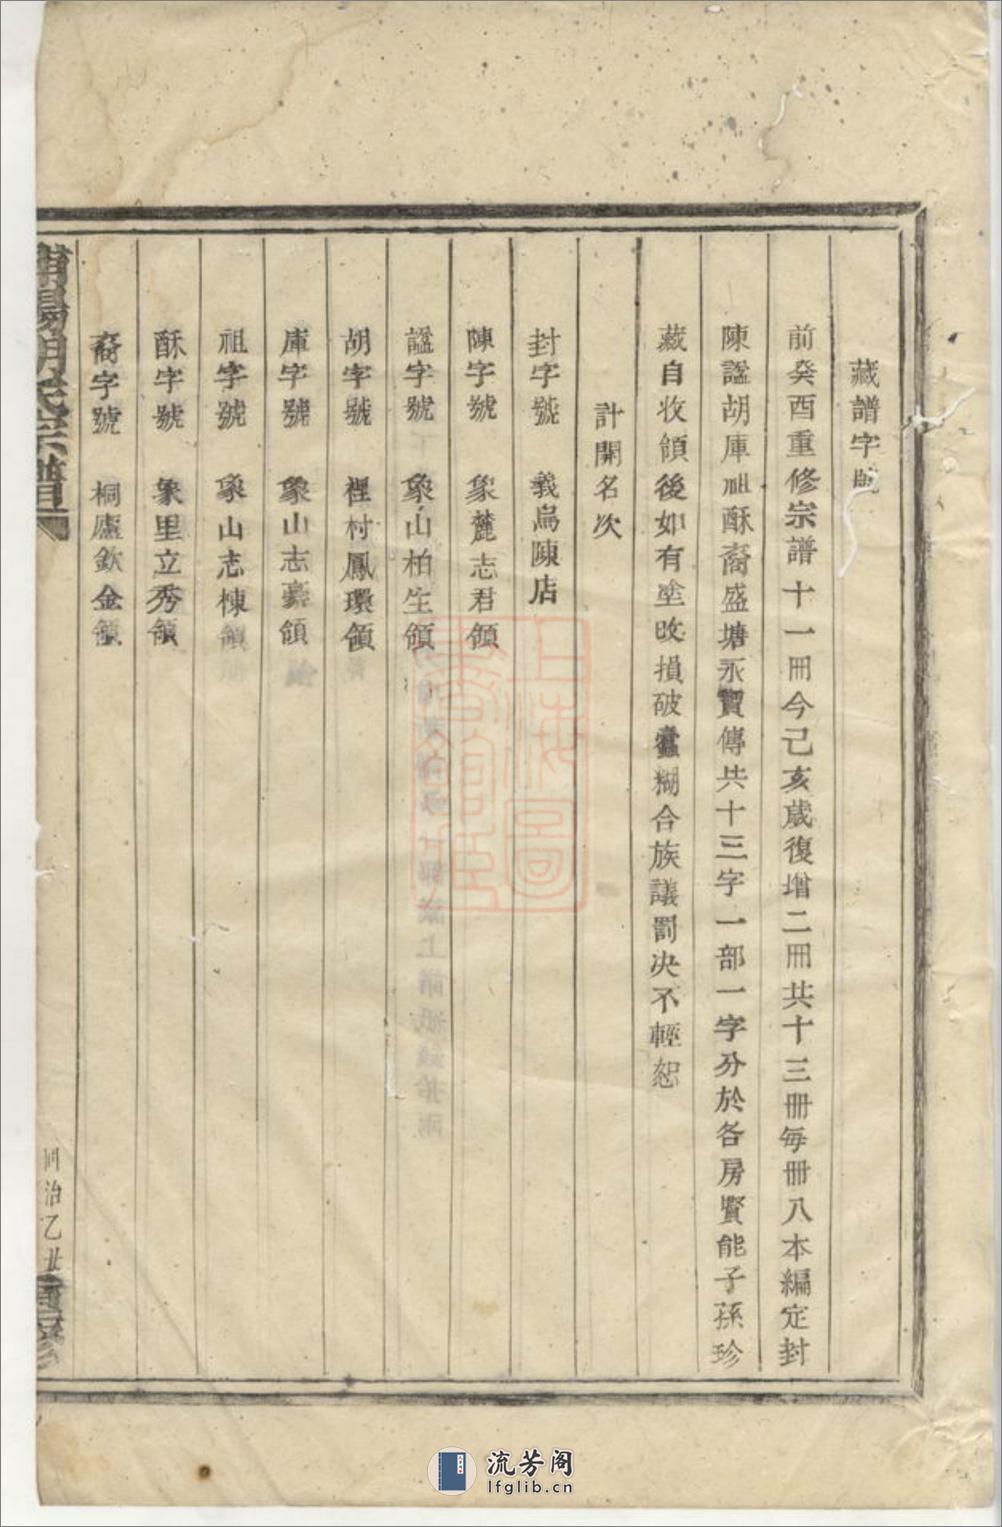 藏譜字號
前癸酉重修宗譜十一冊今己亥歲復增二冊共十三冊每冊八本編定封
陳謚胡庫祖酥裔盛塘永寶傳共十三字一部一字分於各房賢能子孫珍
藏自收領後如有塗改損破蠹糊合族議罰決不輕恕
計開名次
封字號 義烏陳店
陳字號 象麓志君領
謚字號 象山柏生領
胡字號 裡村鳳環領
庫字號 象山志豪領
祖字號 象山志棟領
酥字號 象里立秀領
裔字號 桐廬欽金領
胡氏宗譜
同治乙丑重修
上海圖書館藏
流芳阁
lfglib.cn